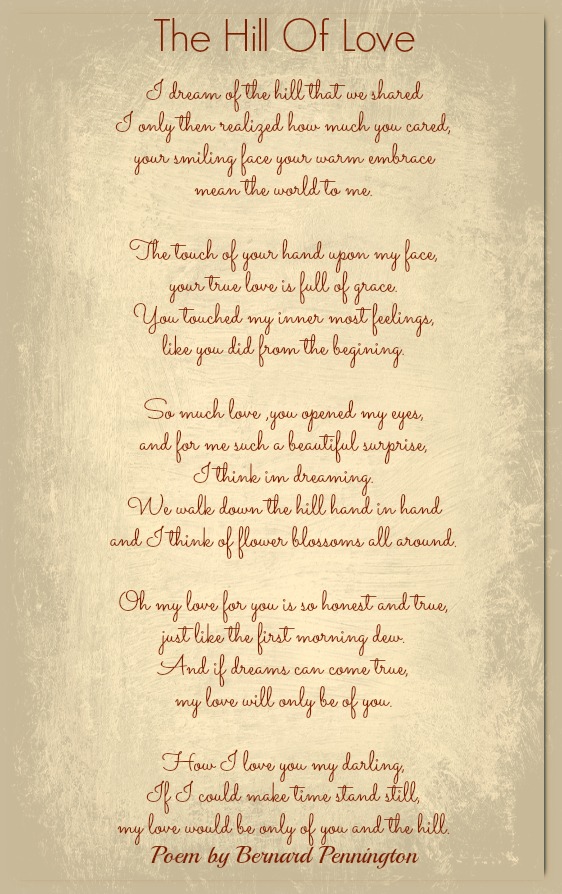 The Hill Of Love
I dream of the hill that we shared
I only then realized how much you cared,
your smiling face your warm embrace
mean the world to me.
The touch of your hand upon my face,
your true love is full of grace.
You touched my inner most feelings,
like you did from the begining.
So much love ,you opened my eyes,
and for me such a beautiful surprise,
I think im dreaming.
We walk down the hill hand in hand
and I think of flower blossoms all around.
Oh my love for you is so honest and true,
just like the first morning dew.
And if dreams can come true,
my love will only be of you.
How I love you my darling,
If I could make time stand still,
my love would be only of you and the hill.
Poem by Bernard Pennington